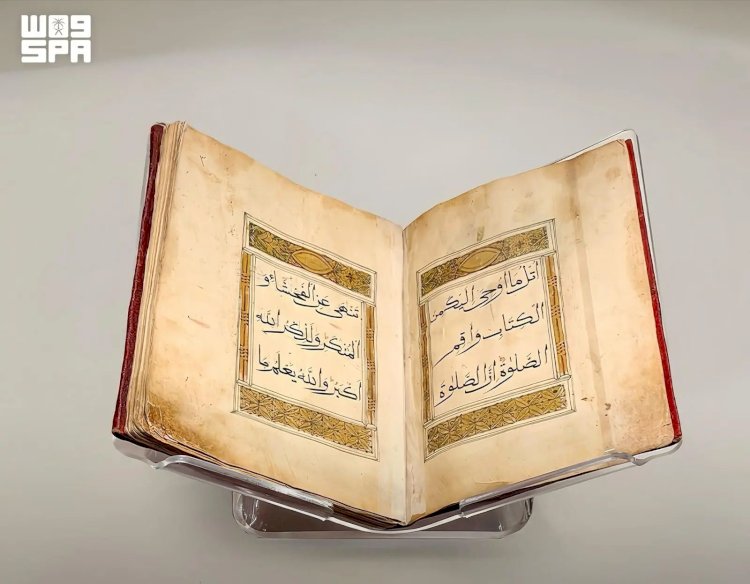 واس
SPA
أتل ما أوحى إليك من
الكتاب وأقم
الصلوة إن الصلوة
تنهى عن الفحشاء و
المنكر ولذكر الله
أكبر والله يعلم ما